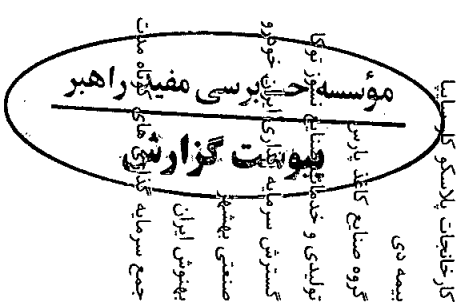 مؤسسه حسابرسی مفید راهبر
پیوست گزارش
کارخانجات پلاسکو کار سایپا
بیمه دی
گروه صنایع کاغذ پارس
تولیدی و خدمات صنایع نسوز توکا
گسترش سرمایه گذاری ایران خودرو
صنعتی بهشهر
بهنوش ایران
جمع سرمایه گذاری های کوتاه مدت